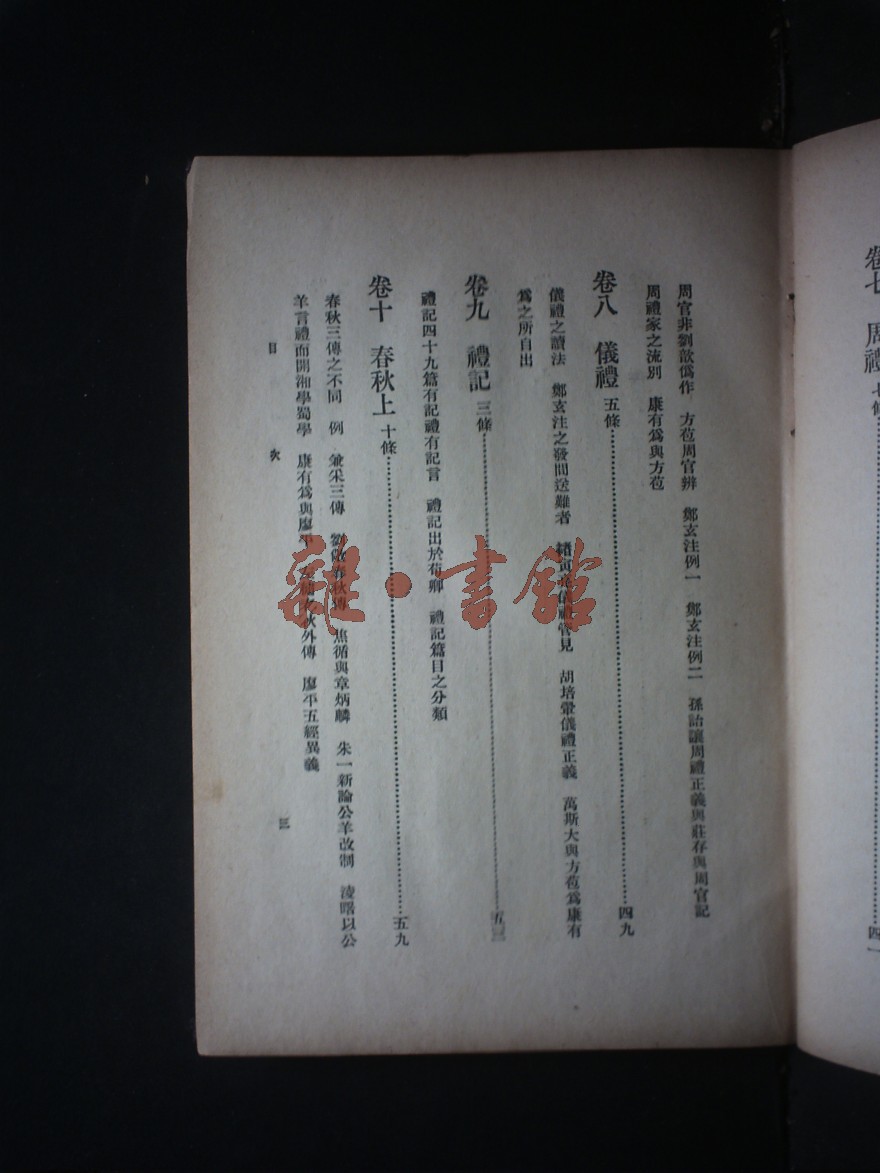 卷七 周禮 七條
四一
周官非劉歆僞作 方苞周官辨 鄭玄注例一 鄭玄注例二 孫詒讓周禮正義與莊存與周官記
周禮家之流別 康有爲與方苞
卷八 儀禮 五條 四九
儀禮之讀法 鄭玄注之發問送難者 褚寅亮儀禮管見 胡培翬儀禮正義 萬斯大與方苞爲康有
爲之所自出
卷九 禮記 三條 五三
禮記四十九篇有記禮有記言 禮記出於荀卿 禮記篇目之分類
卷十 春秋上 十條 五九
春秋三傳之不同 例 兼采三傳 劉敞春秋傳 焦循與章炳麟 朱一新論公羊改制 淩曙以公
羊言禮而開湘學蜀學 康有爲與廖平 春秋外傳 廖平五經異義
目 次
三
雜·書館